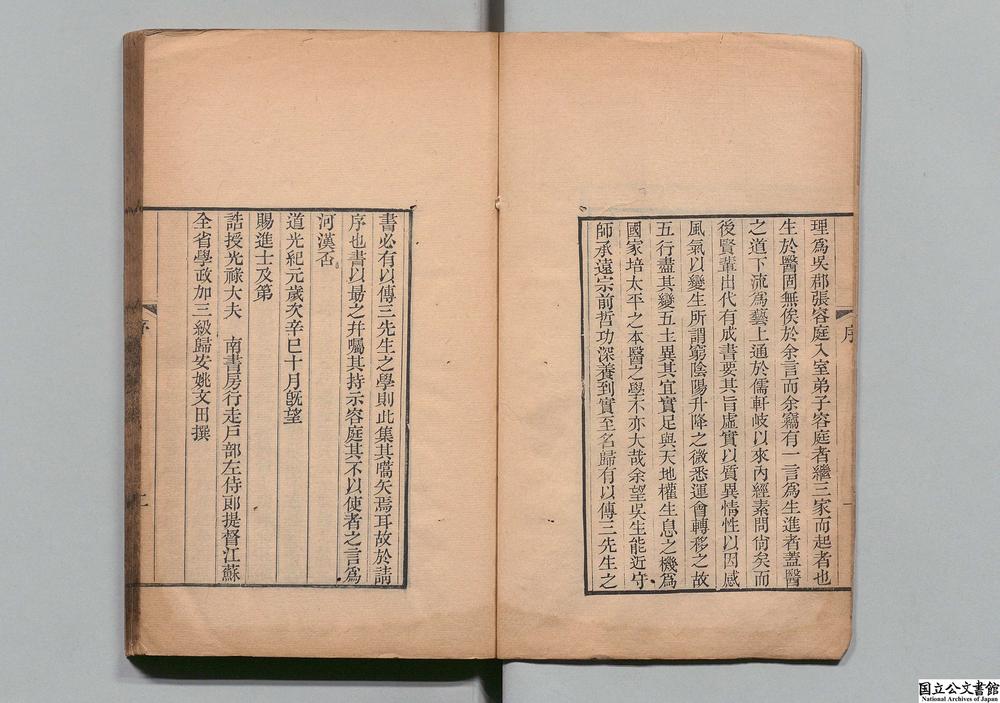 理爲吳郡張容庭入室弟子容庭者繼三家而起者也
生於醫固無俟於余言而余竊有一言爲生進者蓋醫
之道下流爲藝上通於儒軒岐以來內經素問尙矣而
後賢輩出代有成書要其旨虛實以質異情性以因感
風氣以變生所謂窮陰陽升降之微悉運會轉移之故
五行盡其變五土異其宜實足與天地權生息之機爲
國家培太平之本醫之學不亦大哉余望吳生能近守
師承遠宗前哲功深養到實至名歸有以傳三先生之
序
一
書必有以傳三先生之學則此集其嚆矢焉耳故於請
序也書以勗之幷囑其持示容庭其不以使者之言爲
河漢否
道光紀元歲次辛巳十月旣望
賜進士及第
誥授光祿大夫 南書房行走戸部左侍郎提督江蘇
全省學政加三級歸安姚文田撰
序
二
国立公文書館
National Archives of Japan